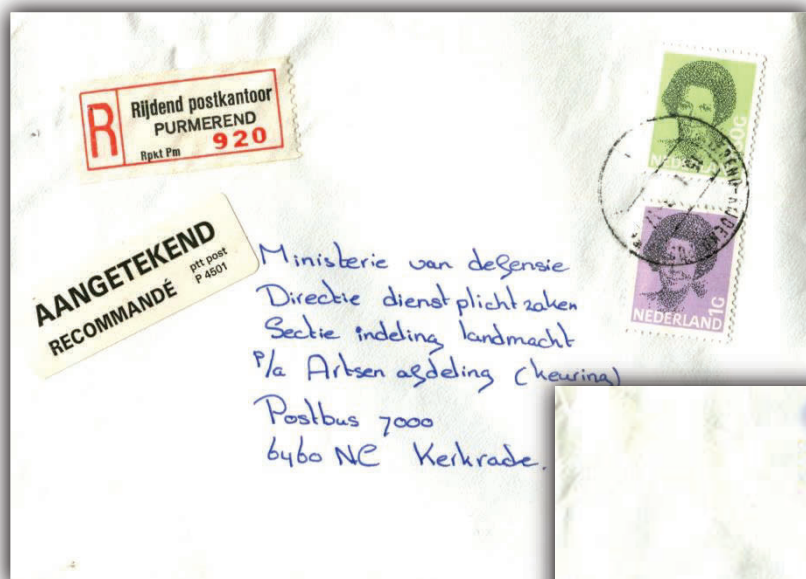 R
Rijdend postkantoor
PURMEREND
920
Rpkt Pm
AANGETEKEND
RECOMMANDÉ
ptt post
P 4501
NEDERLAND
1G
Ministerie van defensie
Directie dienstplichtzaken
Sectie indeling landmacht
P/a Artsen afdeling (keuring)
Postbus 7000
6460 NC Kerkrade.